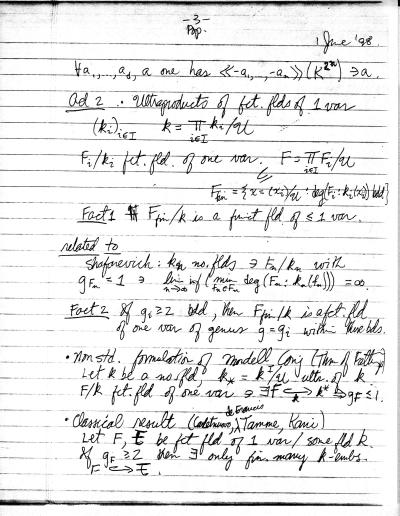 -3-
Pop.
1 June '98
∀a₁,...,aₙ, a one has ≪-a₁,...,-aₙ≫(K^{2^n}) ∋ a.
Ad 2. Ultraproducts of fct. flds of 1 var
(k_i)_{i∈I} k = ∏_{i∈I} k_i/𝒰
F_i/k_i fct. fld. of one var. F = ∏_{i∈I} F_i/𝒰
F_{fin} = {x = (x_i)/𝒰 : deg(F_i : k_i(x_i)) bdd}
Fact 1 F_{fin}/k is a fnct fld of ≤ 1 var.
related to
Shafarevich: k_n no. flds ∋ F_n/k_n with
g_{F_n} = 1 ∋ lim inf_{n→∞} (min_{t_n∈F_n} deg(F_n : k_n(t_n))) = ∞.
Fact 2 If g_i ≥ 2 bdd, then F_{fin}/k is a fct. fld
of one var of genus g = g_i within these bds.
• Non std. formulation of Mordell Conj (Thm of Faltings)
Let k be a no. fld, k_* = k^I/𝒰 ultr. of k
F/k fct. fld of one var ∋ ∃ F ↪_k k^* ⟹ g_F ≤ 1.
de Francis
• Classical result (, Tamme, Kani)
Let F, E be fct fld of 1 var / some fld k.
If g_F ≥ 2 then ∃ only fin. many k-embs.
F ↪ E.